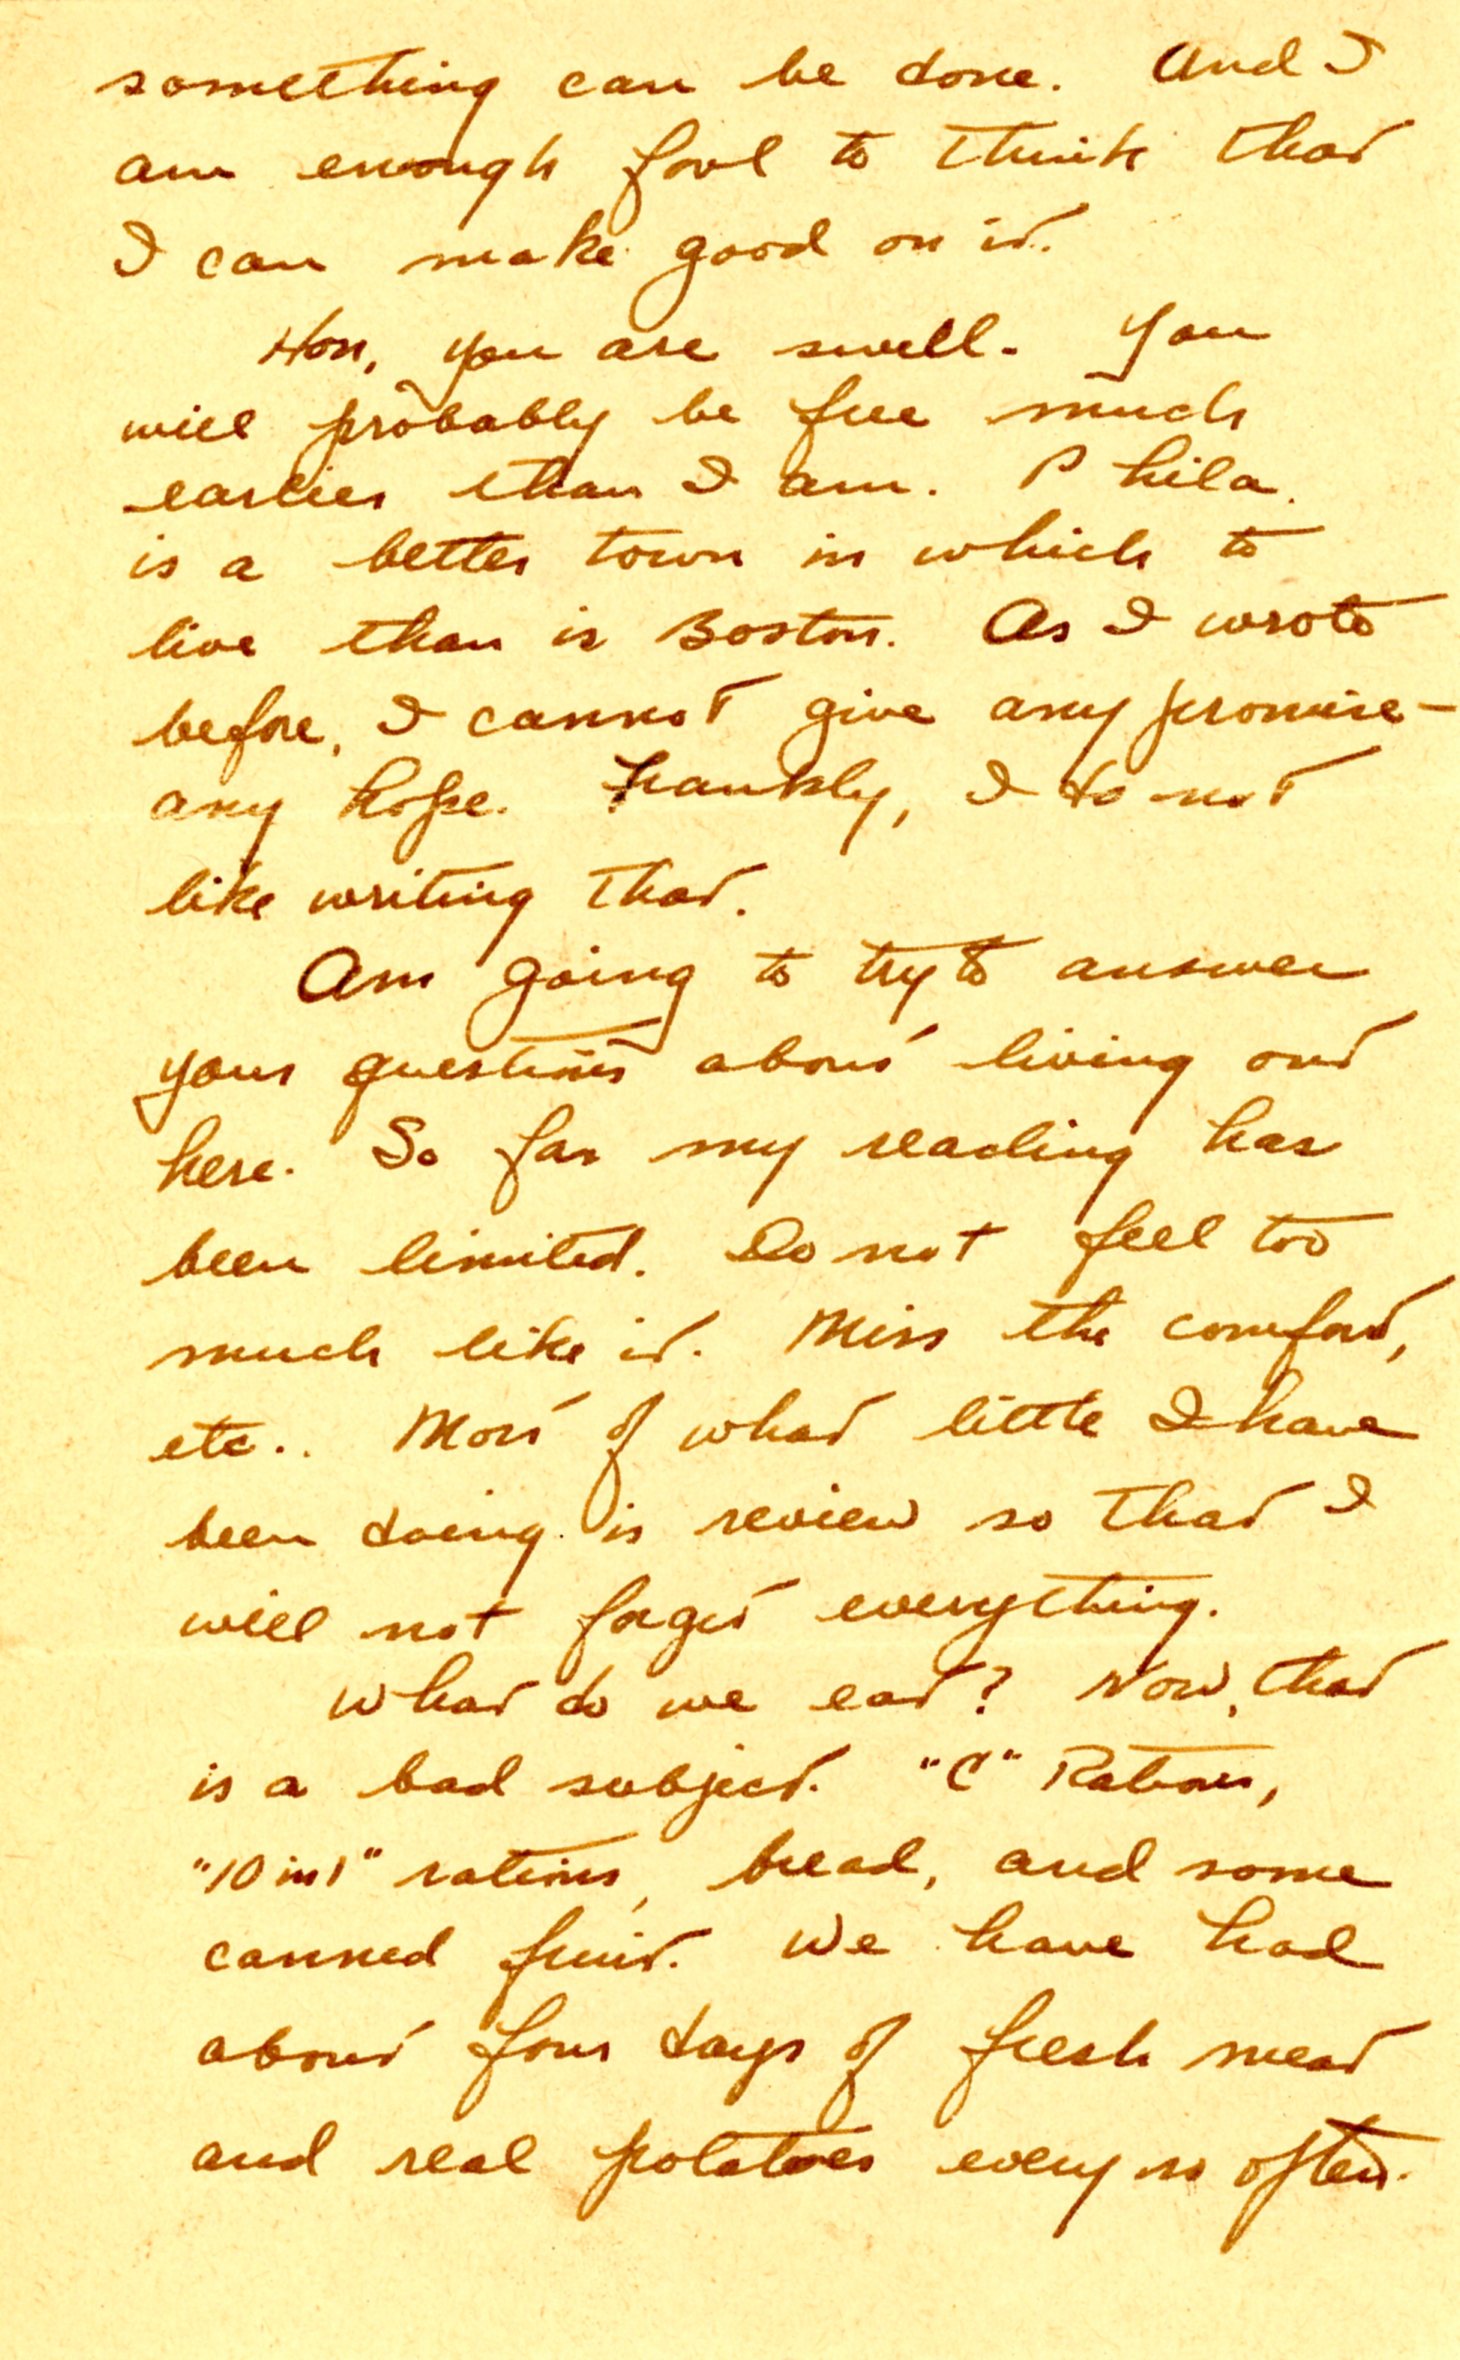 something can be done. And I
am enough fool to think that
I can make good on it.
Hon, you are swell. You
will probably be free much
earlier than I am. Phila.
is a better town in which to
live than is Boston. As I wrote
before, I cannot give any promise –
any hope. Frankly, I do not
like writing that.
Am going to try to answer
your questions about living out
here. So far my reading has
been limited. Do not feel too
much like it. Miss the comfort,
etc.. Most of what little I have
been doing is review so that I
will not forget everything.
What do we eat? Now, that
is a bad subject. "C" Rations,
"10 in 1" rations, bread, and some
canned fruit. We have had
about four days of fresh meat
and real potatoes every so often.